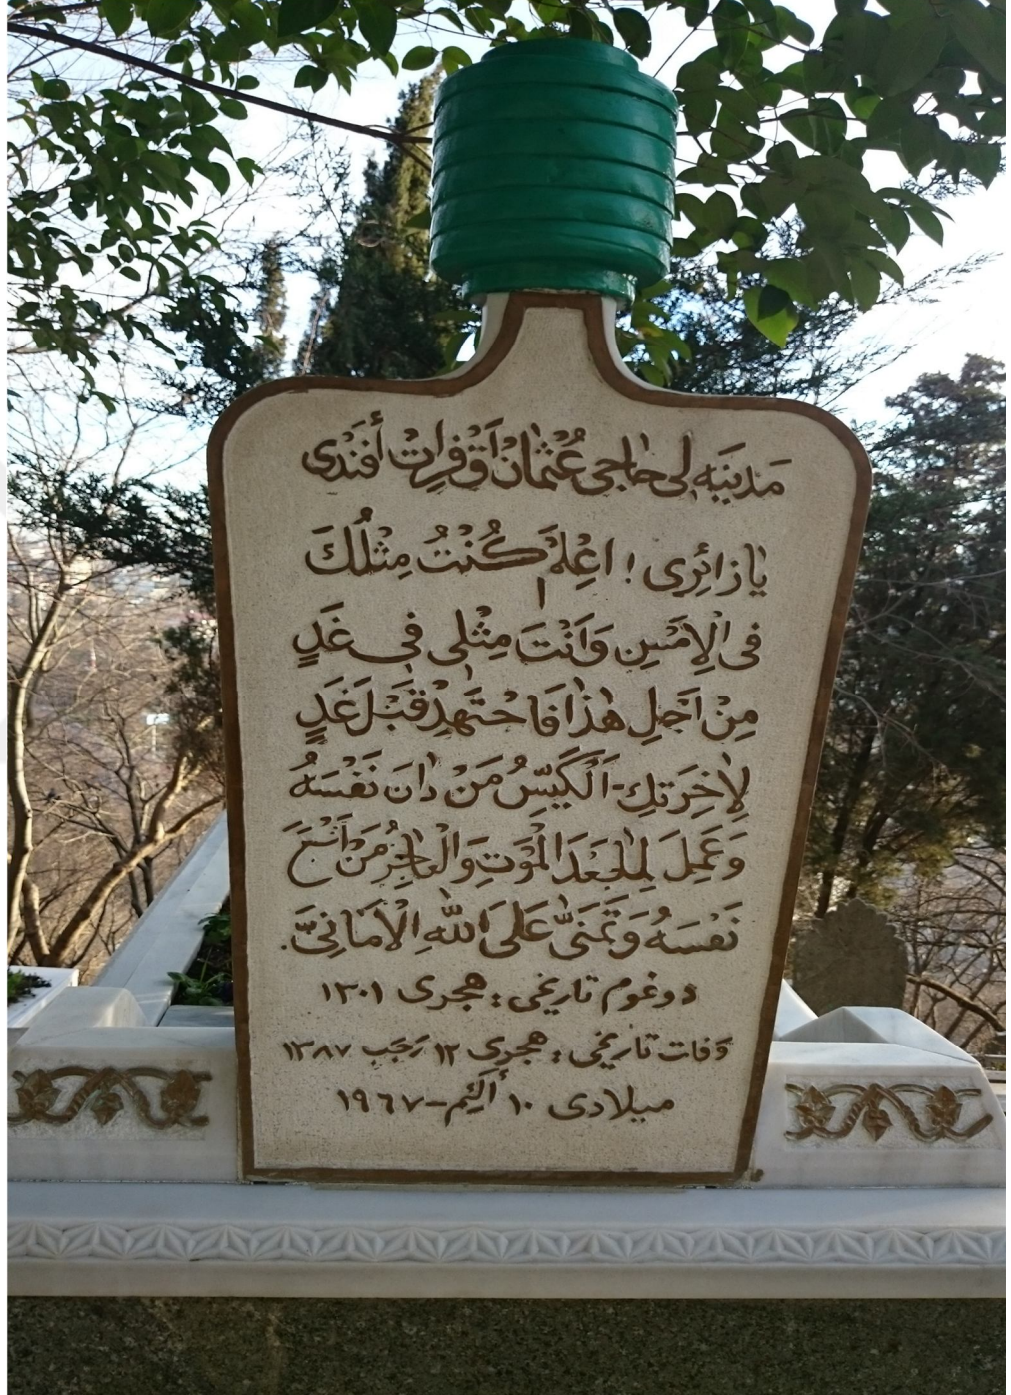 مَدِينَه لى حاجى عُثْمَانْ آقْ فِرَاتْ أَفَنْدِى
يَا زَائِرِى ! اعْلَمْ كُنْتُ مِثْلُكَ
فِى الْاَمْسِ وَاَنْتَ مِثْلِى فِى غَدٍ
مِنْ اَجْلِ هٰذَا فَاجْتَهِدْ قَبْلَ غَدٍ
لِاٰخِرَتِكَ - اَلْكَيِّسُ مَنْ دَانَ نَفْسَهُ
وَعَمِلَ لِمَا بَعْدَ الْمَوْتِ وَالْعَاجِزُ مَنْ اَتْبَعَ
نَفْسَهُ وَتَمَنَّى عَلَى اللّٰهِ الْاَمَانِىَّ.
دوغوم تاريخى : هجرى ١٣٠١
وفات تاريخى : هجرى ١٢ رَجَب ١٣٨٧
ميلادى ١٠ أكيم - ١٩٦٧